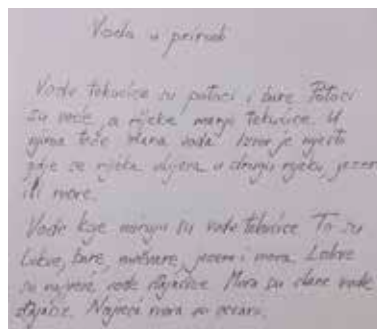 Voda u prirodi
Vode tekućice su potoci i bare. Potoci
su veće, a rijeke manje tekućice. U
njima teče slana voda. Izvor je mjesto
gdje se rijeka ulijeva u drugu rijeku, jezero
ili more.
Vode koje miruju su vode tekućice. To su
Lokve, bare, močvare, jezera i mora. Lokve
su najveće vode stajaćice. Mora su slane vode
stajaćice. Najveća mora su oceani.